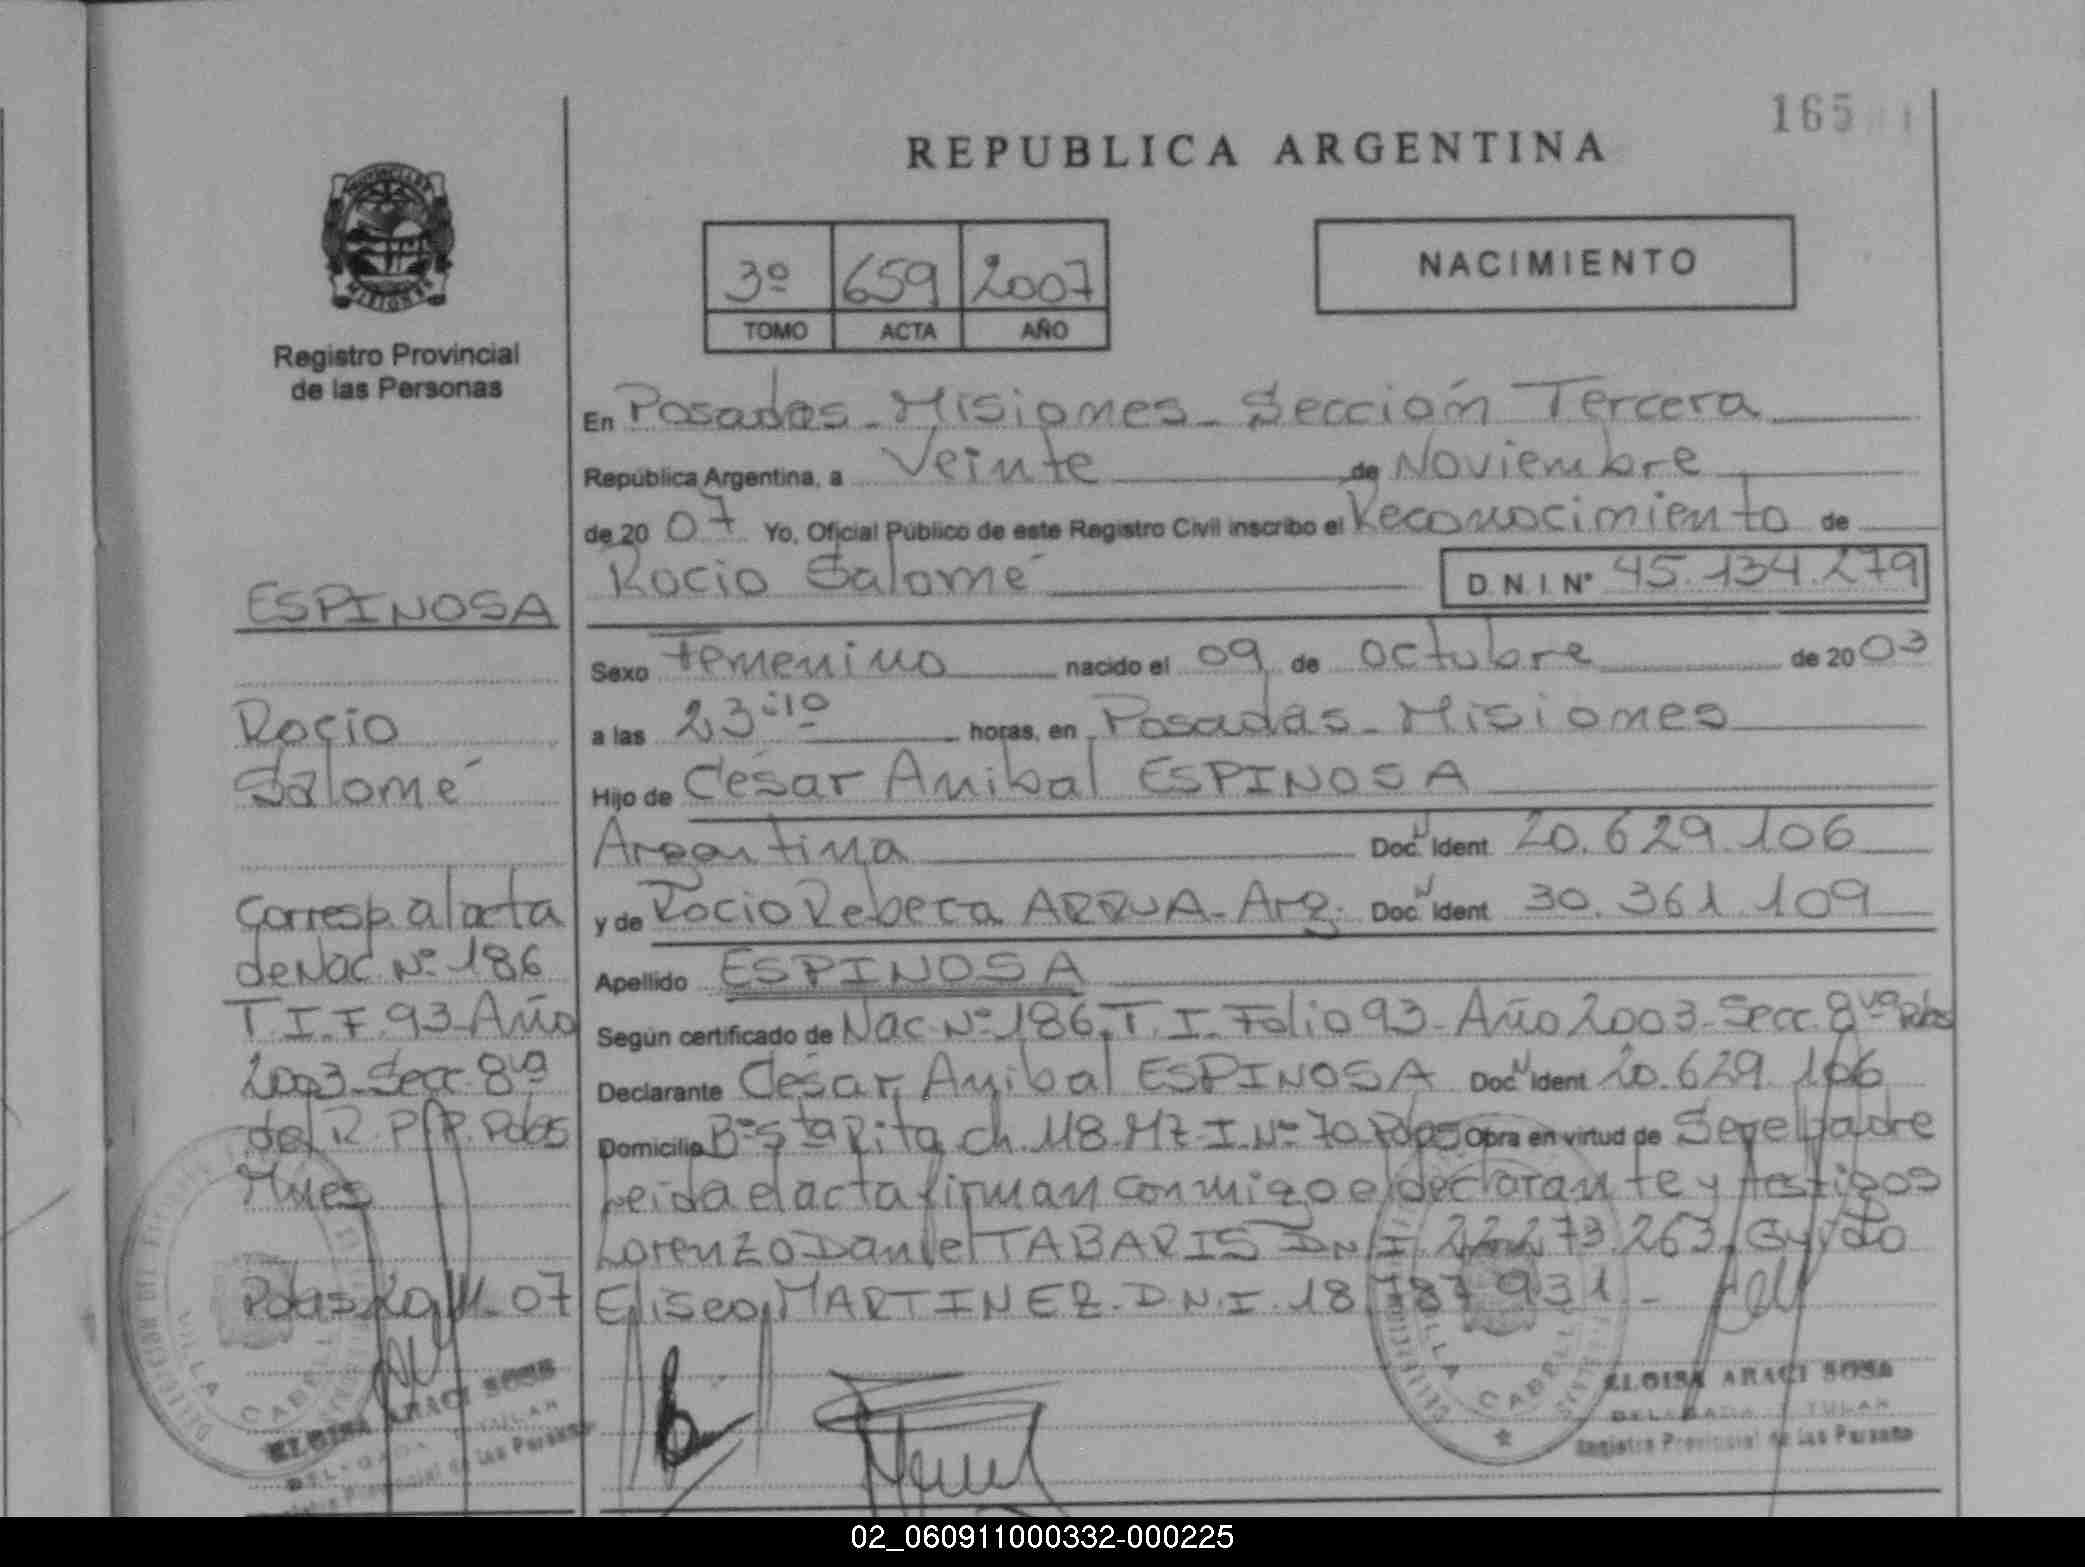 165
REPUBLICA ARGENTINA
3º 659 2007
TOMO ACTA AÑO
NACIMIENTO
MISIONES
Registro Provincial
de las Personas
ESPINOSA
Rocio
Salomé
Corresp. al acta
de Nac. Nº 186
T. I. F. 93 - Año
2003 - Secc. 8va
del R. P. P. Pdas
Mnes
Pdas 20.11.07
En Posadas - Misiones - Sección Tercera
República Argentina, a Veinte de Noviembre
de 2007 Yo, Oficial Público de este Registro Civil inscribo el Reconocimiento de
Rocio Salomé D.N.I. Nº 45.134.279
Sexo Femenino nacido el 09 de octubre de 2003
a las 23:10 horas, en Posadas - Misiones
Hijo de César Anibal ESPINOSA
Argentina Doc. N Ident. 20.629.106
y de Rocio Rebeca ARRUA - Arg. Doc. N Ident. 30.361.109
Apellido ESPINOSA
Según certificado de Nac. Nº 186. T. I. Folio 93 - Año 2003 - Secc. 8va Pdas
Declarante César Anibal ESPINOSA Doc. N Ident. 20.629.106
Domicilio Bº Sta Rita ch. 118. Mz. I. Nº 70 Pdas Obra en virtud de Ser el padre
Leida el acta firman conmigo el declarante y testigos
Lorenzo Daniel TABARIS D.N.I. 22.273.263, Guido
Eliseo MARTINEZ. D.N.I. 18.787.931 -
VILLA CABELLO
ELOISA ARACI SOSA
DELEGADA TITULAR
Registro Provincial de las Personas
VILLA CABELLO
ELOISA ARACI SOSA
DELEGADA TITULAR
Registro Provincial de las Personas
02_060911000332-000225